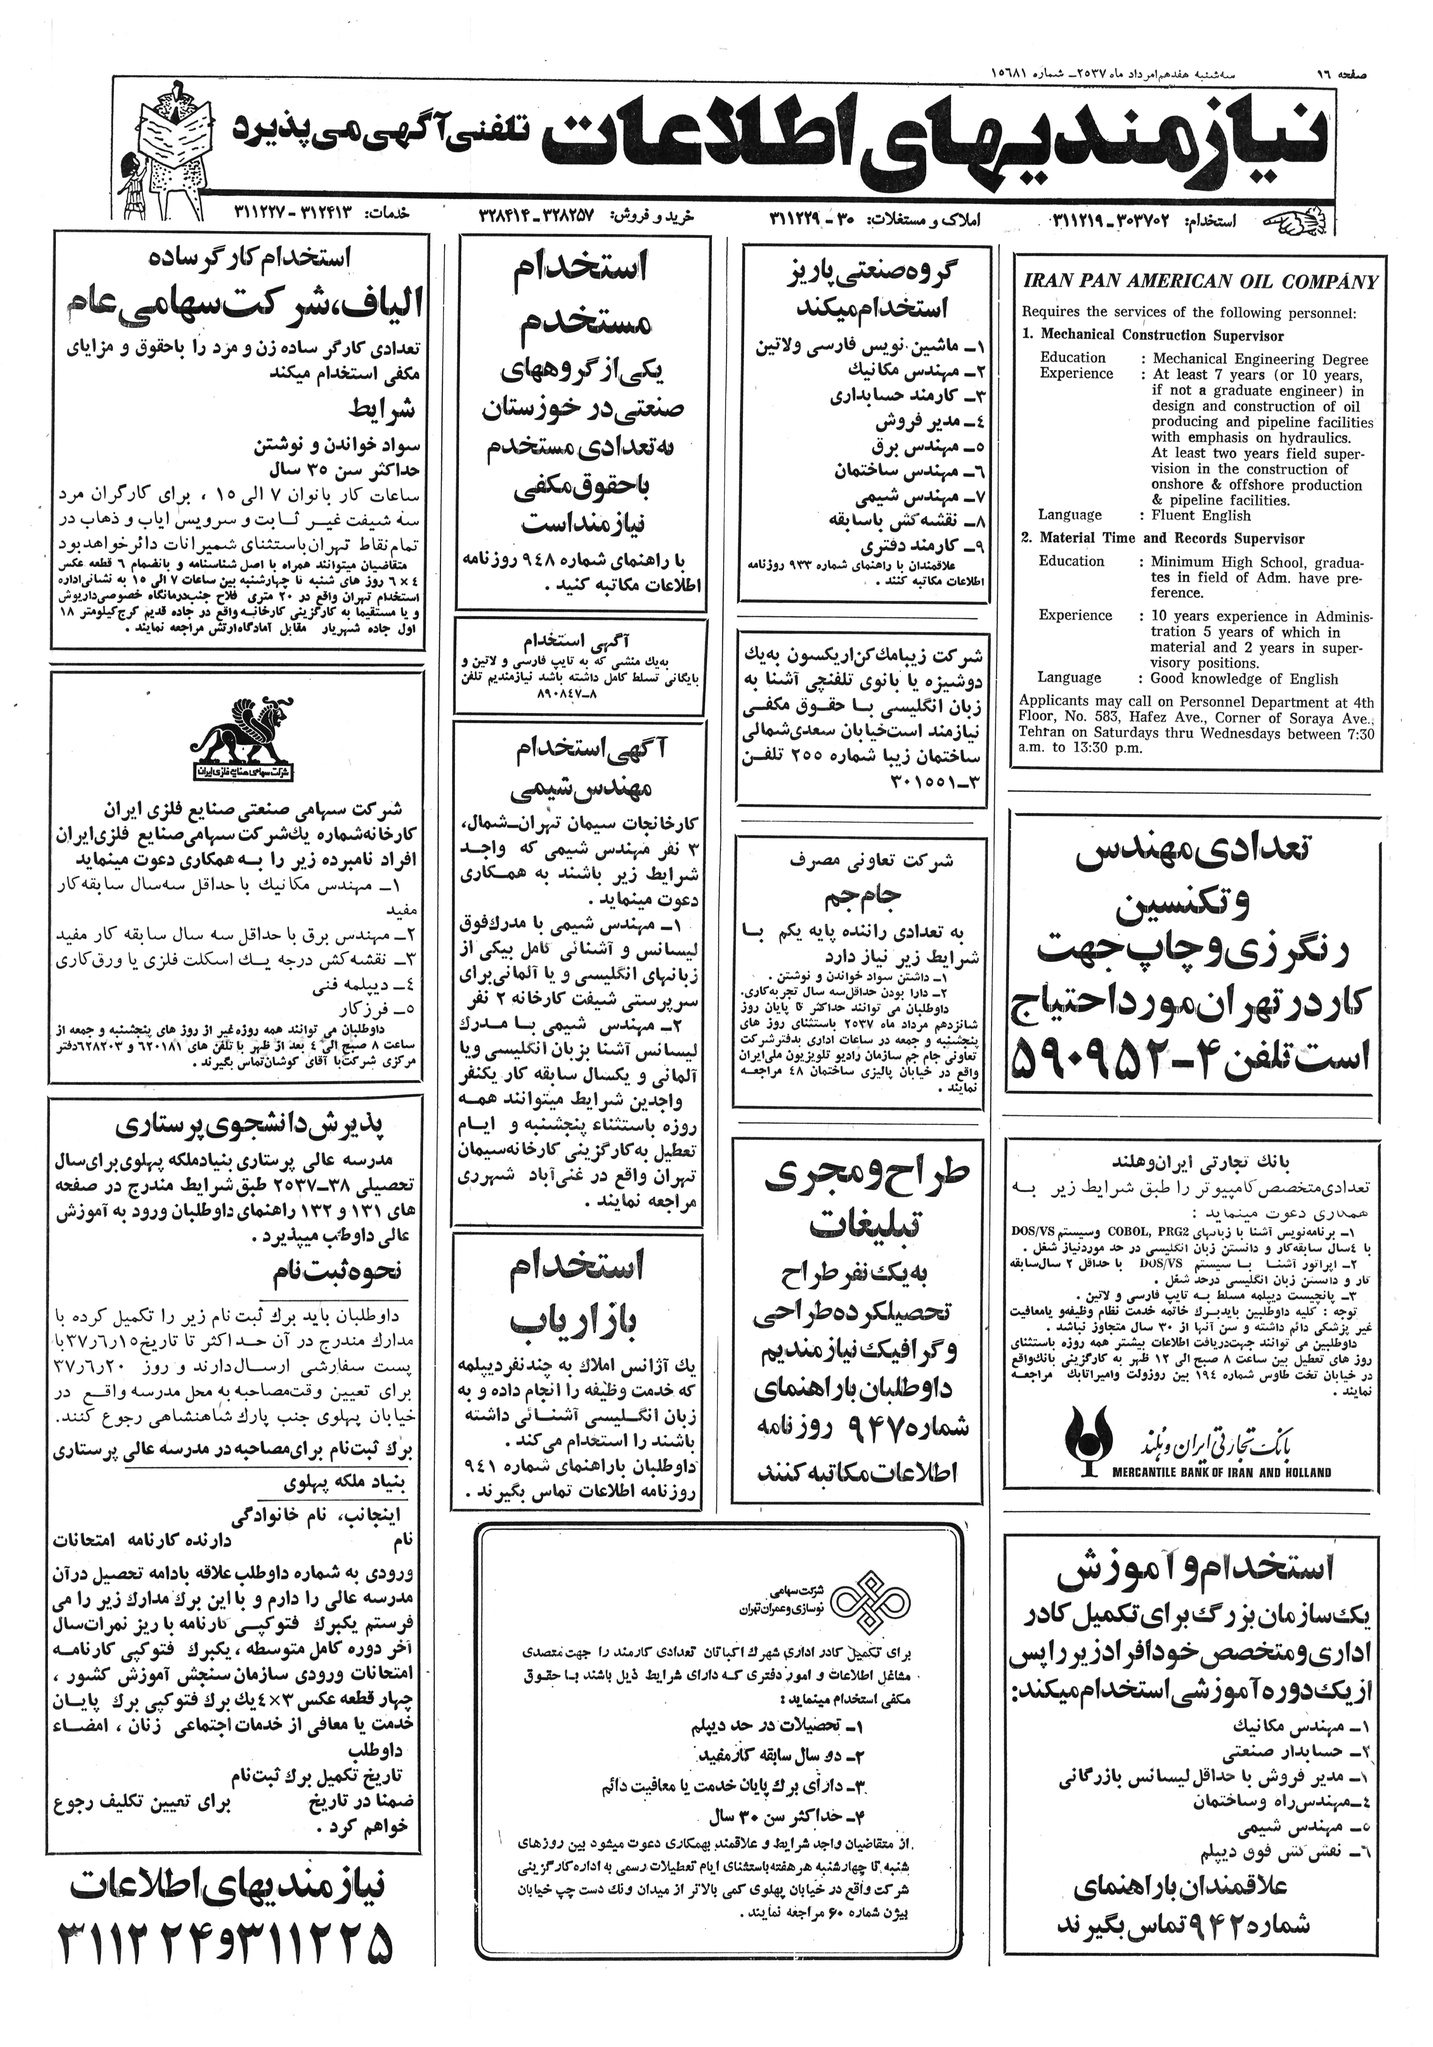 صفحه ۱۶
سه‌شنبه هفدهم امرداد ماه ۲۵۳۷ـ شماره ۱۵۶۸۱
نیازمندیهای اطلاعات تلفنی آگهی می‌پذیرد
استخدام: ۳۰۳۷۰۲ـ۳۱۱۲۱۹
املاک و مستغلات: ۳۰ـ۳۱۱۲۲۹
خرید و فروش: ۳۲۸۲۵۷ـ۳۲۸۴۱۴
خدمات: ۳۱۲۴۱۳ـ۳۱۱۲۲۷
IRAN PAN AMERICAN OIL COMPANY
Requires the services of the following personnel:
1. Mechanical Construction Supervisor
Education : Mechanical Engineering Degree
Experience : At least 7 years (or 10 years,
if not a graduate engineer) in
design and construction of oil
producing and pipeline facilities
with emphasis on hydraulics.
At least two years field super-
vision in the construction of
onshore & offshore production
& pipeline facilities.
Language : Fluent English
2. Material Time and Records Supervisor
Education : Minimum High School, gradua-
tes in field of Adm. have pre-
ference.
Experience : 10 years experience in Adminis-
tration 5 years of which in
material and 2 years in super-
visory positions.
Language : Good knowledge of English
Applicants may call on Personnel Department at 4th
Floor, No. 583, Hafez Ave., Corner of Soraya Ave.,
Tehran on Saturdays thru Wednesdays between 7:30
a.m. to 13:30 p.m.
تعدادی مهندس
و تکنسین
رنگرزی و چاپ جهت
کار در تهران مورد احتیاج
است تلفن ۴ـ۵۹۰۹۵۲
بانك تجارتی ایران و هلند
تعدادی متخصص کامپیوتر را طبق شرایط زیر به
همکاری دعوت مینماید :
۱ـ برنامه‌نویس آشنا با زبانهای COBOL, PRG2 وسیستم DOS/VS
با ٤سال سابقه‌کار و دانستن زبان انگلیسی در حد موردنیاز شغل .
۲ـ اپراتور آشنا با سیستم DOS/VS با حداقل ۲ سال‌سابقه
کار و دانستن زبان انگلیسی درحد شغل .
۳ـ پانچیست دیپلمه مسلط به تایپ فارسی و لاتین .
توجه : کلیه داوطلبین بایدبرك خاتمه خدمت نظام وظیفه‌و یامعافیت
غیر پزشکی دائم داشته و سن آنها از ۳۰ سال متجاوز نباشد .
داوطلبین می توانند جهت‌دریافت اطلاعات بیشتر همه روزه باستثنای
روز های تعطیل بین ساعت ۸ صبح‌الی ۱۲ ظهر به کارگزینی بانك‌واقع
در خیابان تخت طاوس شماره ۱۹٤ بین روزولت وامیراتابك مراجعه
نمایند .
بانک تجارتی ایران و هلند
MERCANTILE BANK OF IRAN AND HOLLAND
استخدام و آموزش
یک سازمان بزرگ برای تکمیل کادر
اداری و متخصص خود افراد زیر را پس
از یک دوره آموزشی استخدام میکند:
۱ـ مهندس مکانیك
۲ـ حسابدار صنعتی
۱ـ مدیر فروش با حداقل لیسانس بازرگانی
٤ـمهندس‌راه وساختمان
۵ـ مهندس شیمی
۶ـ نقش‌کش فوق دیپلم
علاقمندان با راهنمای
شماره ۹۴۲ تماس بگیرند
گروه صنعتی پاریز
استخدام میکند
۱ـ ماشین نویس فارسی ولاتین
۲ـ مهندس مکانیك
۳ـ کارمند حسابداری
٤ـ مدیر فروش
۵ـ مهندس برق
۶ـ مهندس ساختمان
۷ـ مهندس شیمی
۸ـ نقشه‌کش باسابقه
۹ـ کارمند دفتری
علاقمندان با راهنمای شماره ۹۳۳ روزنامه
اطلاعات مکاتبه کنند .
شرکت زیبامك‌کن‌اریکسون به‌یك
دوشیزه یا بانوی تلفنچی آشنا به
زبان انگلیسی با حقوق مکفی
نیازمند است‌خیابان سعدی‌شمالی
ساختمان زیبا شماره ۲۵۵ تلفن
۳ـ۳۰۱۵۵۱
شرکت تعاونی مصرف
جام جم
به تعدادی راننده پایه یکم با
شرایط زیر نیاز دارد
۱ـ داشتن سواد خواندن و نوشتن .
۲ـ دارا بودن حداقل‌سه سال تجربه‌کاری.
داوطلبان می توانند حداکثر تا پایان روز
شانزدهم مرداد ماه ۲۵۳۷ باستثنای روز های
پنجشنبه و جمعه در ساعات اداری بدفترشرکت
تعاونی جام جم سازمان رادیو تلویزیون ملی‌ایران
واقع در خیابان پالیزی ساختمان ٤۸ مراجعه
نمایند .
طراح و مجری
تبلیغات
به یک نفر طراح
تحصیلکرده طراحی
و گرافیک نیازمندیم
داوطلبان با راهنمای
شماره ۹۴۷ روزنامه
اطلاعات مکاتبه کنند
استخدام
مستخدم
یکی از گروههای
صنعتی در خوزستان
به تعدادی مستخدم
با حقوق مکفی
نیازمند است
با راهنمای شماره ۹٤۸ روزنامه
اطلاعات مکاتبه کنید .
آگهی استخدام
به‌یك منشی که به تایپ فارسی و لاتین و
بایگانی تسلط کامل داشته باشد نیازمندیم تلفن
۸ـ۸۹۰۸٤۷
آگهی استخدام
مهندس شیمی
کارخانجات سیمان تهران‌ـشمال،
۳ نفر مهندس شیمی که واجد
شرایط زیر باشند به همکاری
دعوت مینماید .
۱ـ مهندس شیمی با مدرك‌فوق
لیسانس و آشنائی کامل بیکی از
زبانهای انگلیسی و یا آلمانی‌برای
سرپرستی شیفت کارخانه ۲ نفر
۲ـ مهندس شیمی با مدرك
لیسانس آشنا بزبان انگلیسی ویا
آلمانی و یکسال سابقه کار یکنفر
واجدین شرایط میتوانند همه
روزه باستثناء پنجشنبه و ایام
تعطیل به‌کارگزینی کارخانه‌سیمان
تهران واقع در غنی‌آباد شهرری
مراجعه نمایند .
استخدام
بازاریاب
یك آژانس املاك به چند نفر دیپلمه
که خدمت وظیفه را انجام داده و به
زبان انگلیسی آشنائی داشته
باشند را استخدام می‌کند .
داوطلبان باراهنمای شماره ۹٤۱
روزنامه اطلاعات تماس بگیرند .
شرکت سهامی
نوسازی و عمران تهران
برای تکمیل کادر اداری شهرك اکباتان تعدادی کارمند را جهت متصدی
مشاغل اطلاعات و امور دفتری که دارای شرایط ذیل باشند با حقوق
مکفی استخدام مینماید :
۱ـ تحصیلات در حد دیپلم
۲ـ دو سال سابقه کار مفید
۳ـ دارای برك پایان خدمت یا معافیت دائم
۴ـ حداکثر سن ۳۰ سال
از متقاضیان واجد شرایط و علاقمند بهمکاری دعوت میشود بین روزهای
شنبه تا چهارشنبه هر هفته باستثنای ایام تعطیلات رسمی به اداره کارگزینی
شرکت واقع در خیابان پهلوی کمی بالاتر از میدان ونك دست چپ خیابان
بیژن شماره ۶۰ مراجعه نمایند .
استخدام کارگر ساده
الیاف، شرکت سهامی عام
تعدادی کارگر ساده زن و مرد را باحقوق و مزایای
مکفی استخدام میکند
شرایط
سواد خواندن و نوشتن
حداکثر سن ۳۵ سال
ساعات کار بانوان ۷ الی ۱۵ ، برای کارگران مرد
سه شیفت غیر ثابت و سرویس ایاب و ذهاب در
تمام نقاط تهران باستثنای شمیرانات دائر خواهد بود
متقاضیان میتوانند همراه با اصل شناسنامه و بانضمام ۶ قطعه عکس
۴×۶ روز های شنبه تا چهارشنبه بین ساعات ۷ الی ۱۵ به نشانی‌اداره
استخدام تهران واقع در ۲۰ متری فلاح جنب‌درمانگاه خصوصی‌داریوش
و یا مستقیما به کارگزینی کارخانه واقع در جاده قدیم کرج‌کیلومتر ۱۸
اول جاده شهریار مقابل آمادگاه‌ارتش مراجعه نمایند .
شرکت سهامی صنایع فلزی ایران
شرکت سهامی صنعتی صنایع فلزی ایران
کارخانه‌شماره یك‌شرکت سهامی‌صنایع فلزی‌ایران
افراد نامبرده زیر را به همکاری دعوت مینماید
۱ـ مهندس مکانیك با حداقل سه‌سال سابقه‌کار
مفید
۲ـ مهندس برق با حداقل سه سال سابقه کار مفید
۳ـ نقشه‌کش درجه یك اسکلت فلزی یا ورق‌کاری
٤ـ دیپلمه فنی
۵ـ فرزکار
داوطلبان می توانند همه روزه غیر از روز های پنجشنبه و جمعه از
ساعت ۸ صبح الی ٤ بعد از ظهر با تلفن های ۶۲۰۱۸۱ و ۶۲۸۲۰۳دفتر
مرکزی شرکت‌با آقای کوشان‌تماس بگیرند .
پذیرش دانشجوی پرستاری
مدرسه عالی پرستاری بنیادملکه پهلوی برای سال
تحصیلی ۳۸ـ۲۵۳۷ طبق شرایط مندرج در صفحه
های ۱۳۱ و ۱۳۲ راهنمای داوطلبان ورود به آموزش
عالی داوطلب میپذیرد .
نحوه ثبت نام
داوطلبان باید برك ثبت نام زیر را تکمیل کرده با
مدارك مندرج در آن حداکثر تا تاریخ۳۷٫۶٫۱۵ با
پست سفارشی ارسال‌دارند و روز ۳۷٫۶٫۲۰
برای تعیین وقت‌مصاحبه به محل مدرسه واقع در
خیابان پهلوی جنب پارك شاهنشاهی رجوع کنند.
برك ثبت‌نام برای‌مصاحبه در مدرسه عالی پرستاری
بنیاد ملکه پهلوی
اینجانب، نام خانوادگی
نام دارنده کارنامه امتحانات
ورودی به شماره داوطلب علاقه بادامه تحصیل درآن
مدرسه عالی را دارم و با این برك مدارك زیر را می
فرستم یکبرك فتوکپی کارنامه با ریز نمرات‌سال
آخر دوره کامل متوسطه ، یکبرك فتوکپی کارنامه
امتحانات ورودی سازمان سنجش آموزش کشور ،
چهار قطعه عکس ۳×۴ یك برك فتوکپی برك پایان
خدمت یا معافی از خدمات اجتماعی زنان ، امضاء
داوطلب
تاریخ تکمیل برك ثبت‌نام
ضمنا در تاریخ برای تعیین تکلیف رجوع
خواهم کرد .
نیازمندیهای اطلاعات
۳۱۱۲۲۵و۳۱۱۲۲۴